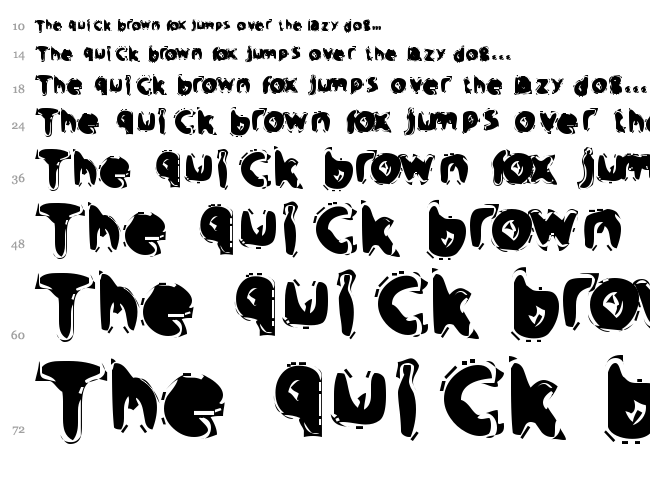 10 The quick brown fox jumps over the lazy dog...
14 The quick brown fox jumps over the lazy dog...
18 The quick brown fox jumps over the lazy dog...
24 The quick brown fox jumps over the
36 The quick brown fox jum
48 The quick brown
60 The quick brow
72 The quick b